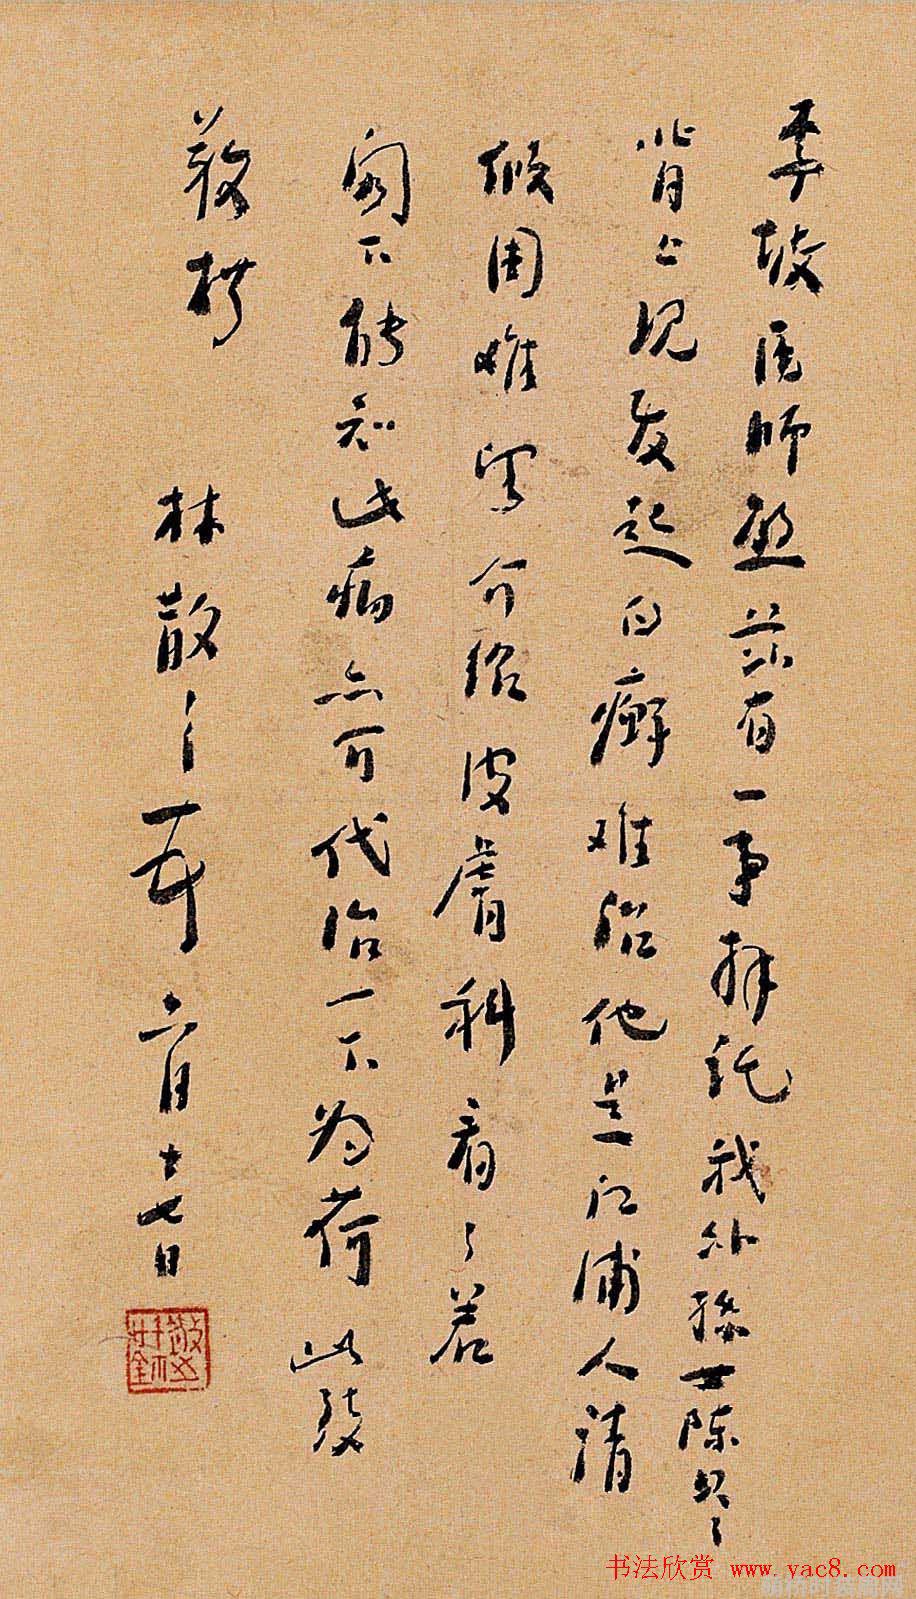 季陵医师鉴兹有一事拜托我外孙女陈
背上现发起白癣难治他是江浦人请
介绍皮肤科看看若
不能知此病亦可代治一下为荷此致
敬礼
林散之 六月十七日
书法欣赏 www.yac8.com